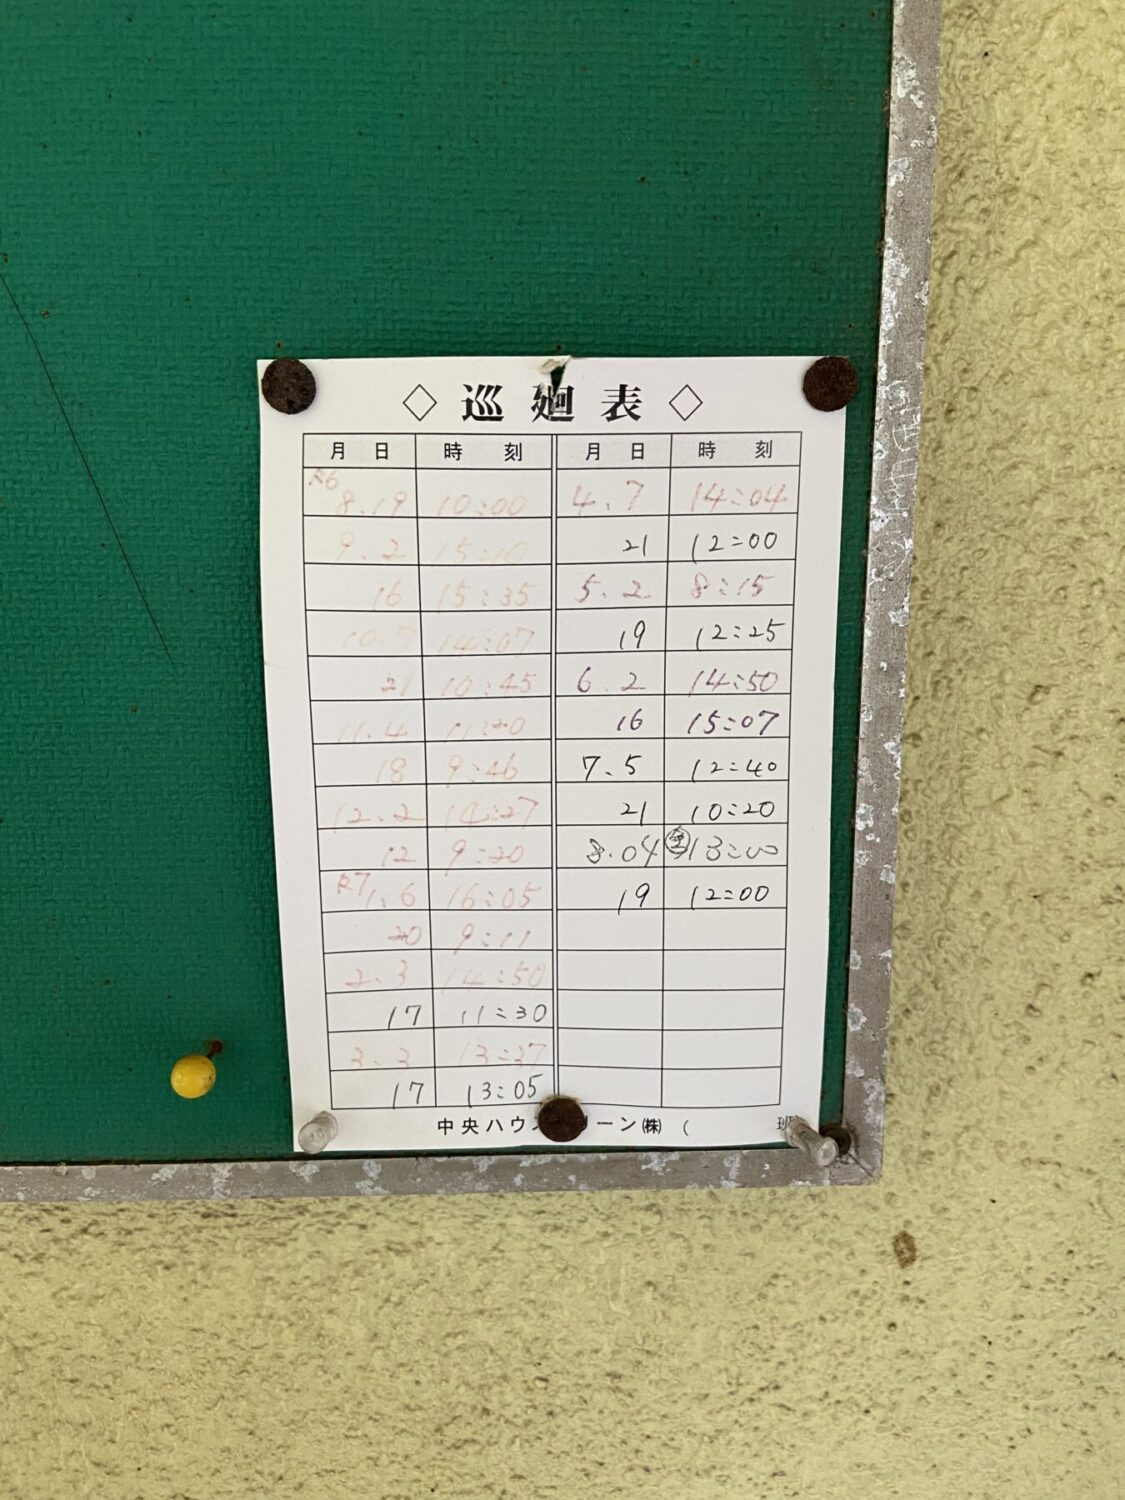 ◇ 巡廻表 ◇
月日 時刻 月日 時刻
R6 8.19 10:00 4.7 14:04
9.2 15:10 21 12:00
16 15:35 5.2 8:15
10.7 14:07 19 12:25
21 10:45 6.2 14:50
11.4 11:20 16 15:07
18 9:46 7.5 12:40
12.2 14:27 21 10:20
12 9:20 8.04 13:00
R7 1.6 16:05 19 12:00
20 9:11
2.3 14:50
17 11:30
3.3 13:37
17 13:05
中央ハウス リーン㈱ ( 班